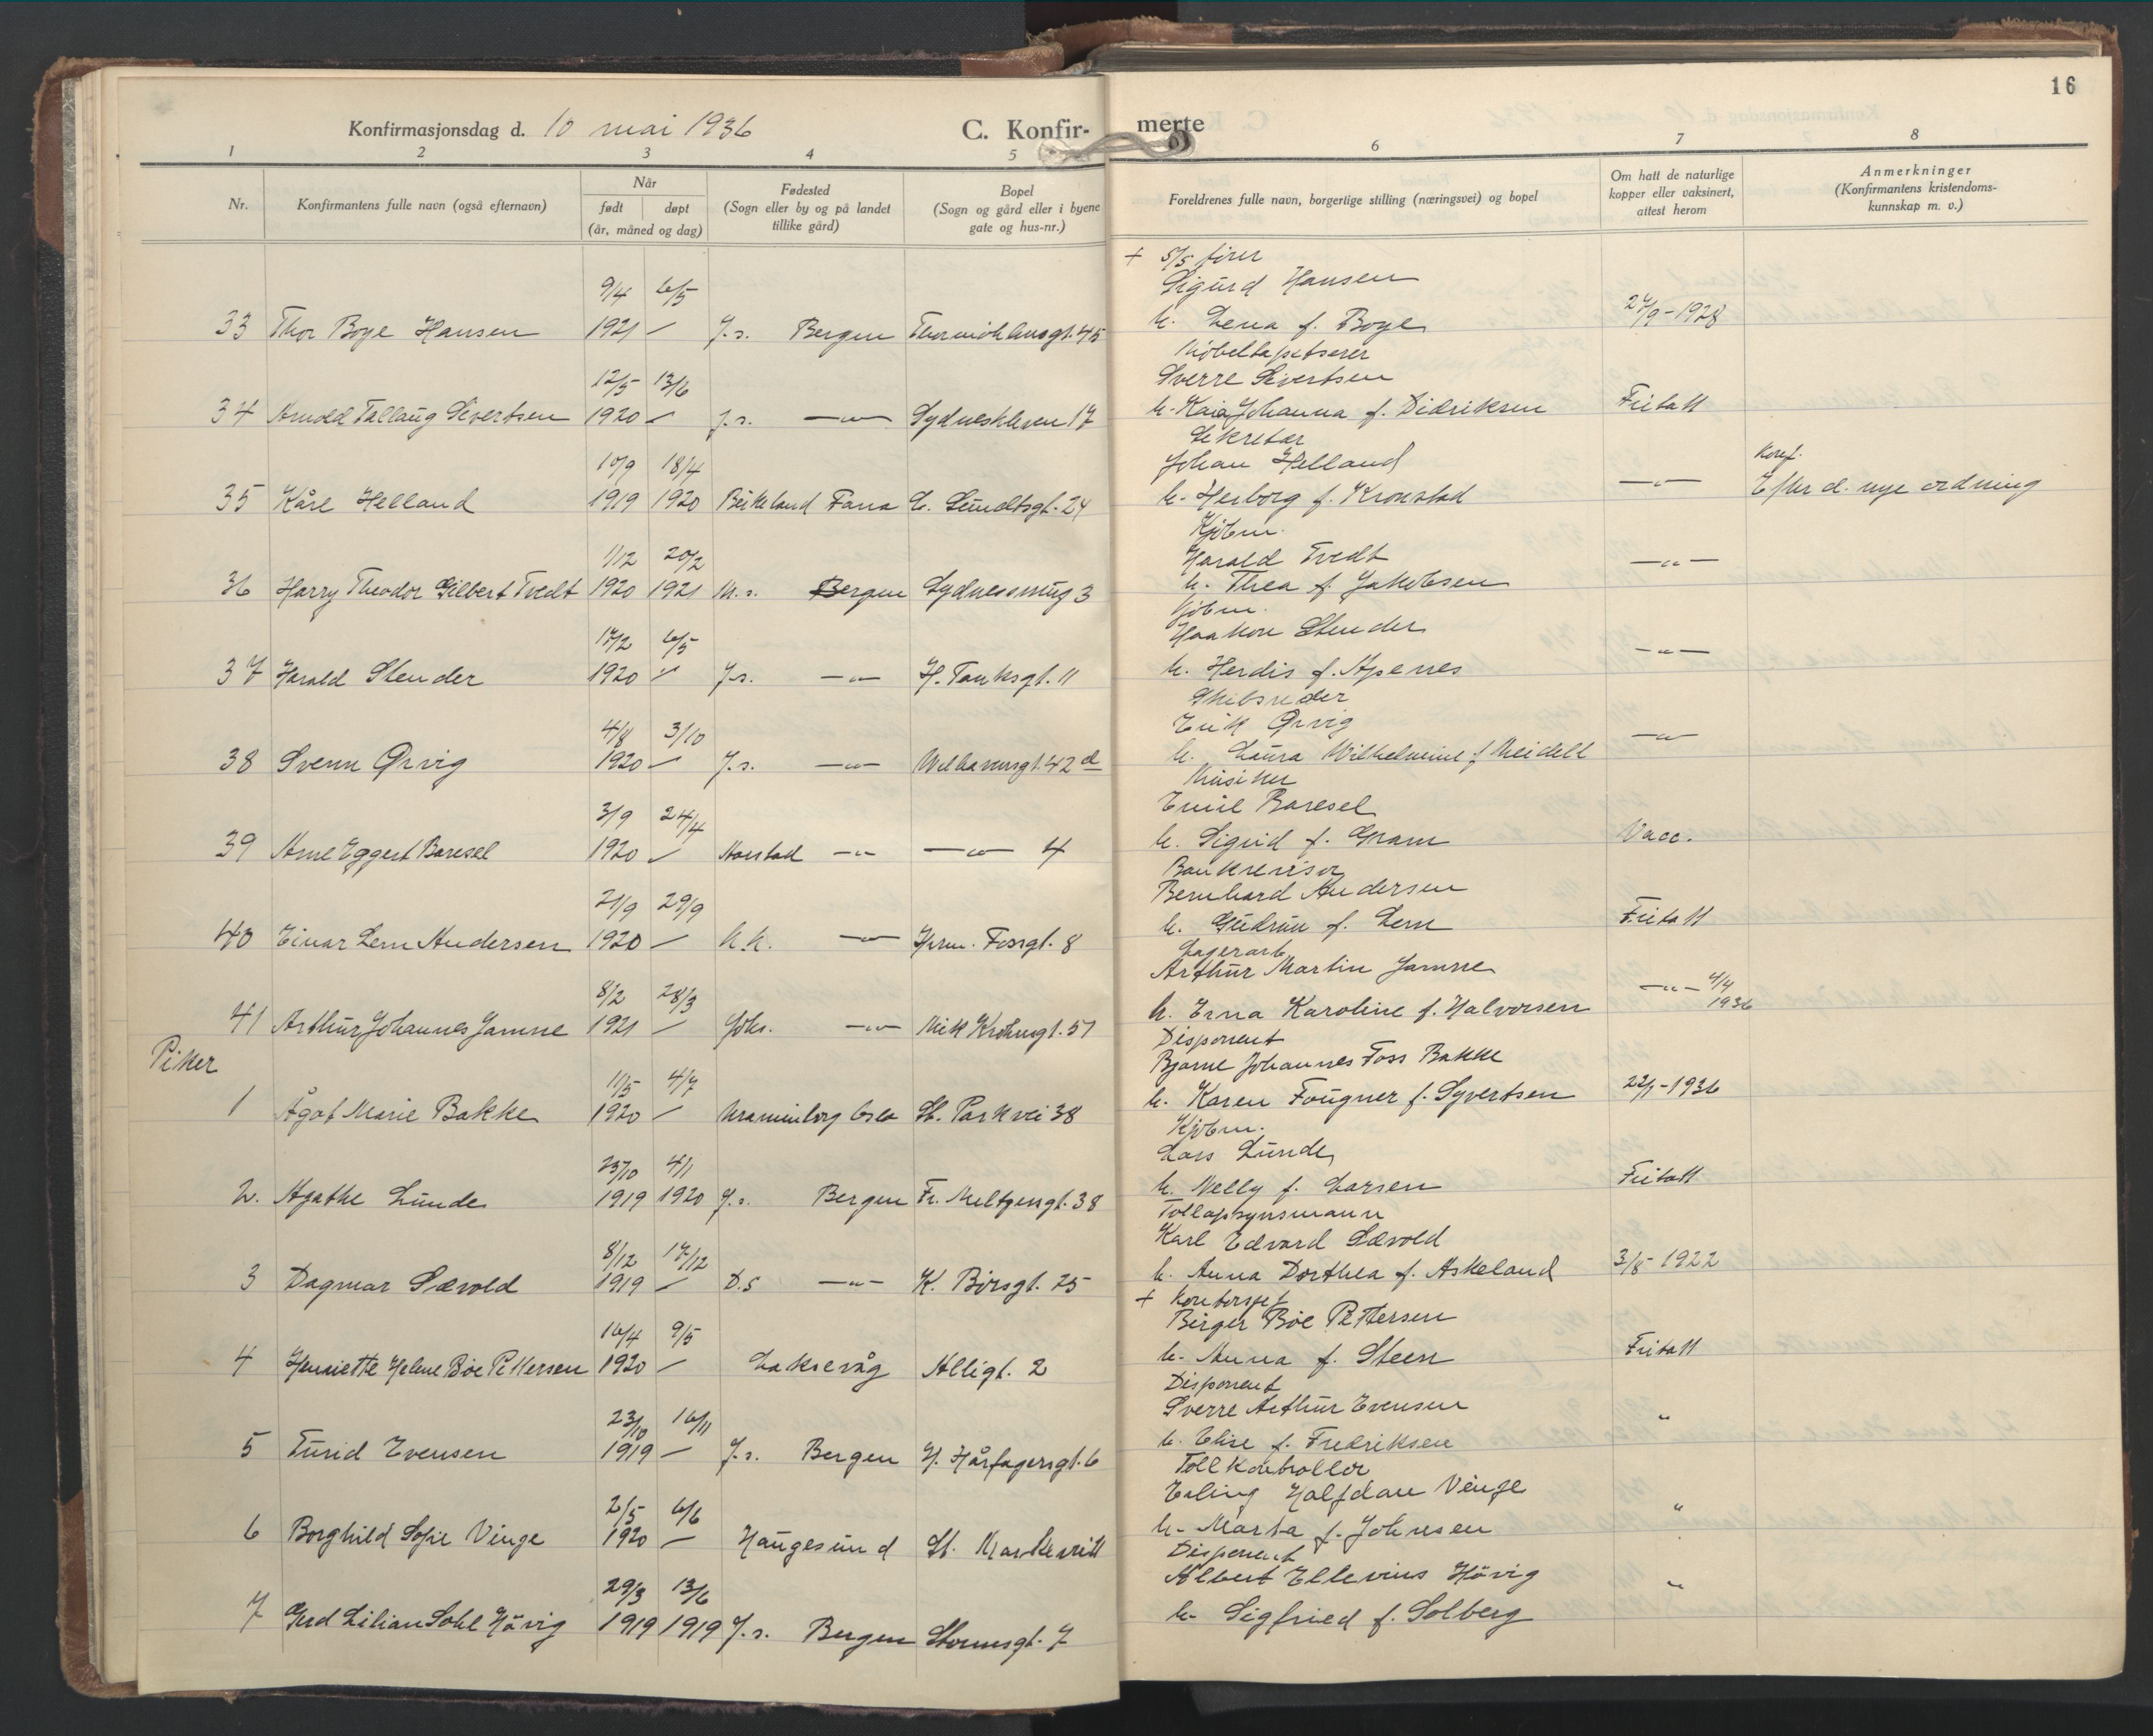 16
Konfirmasjonsdag d. 10 mai 1936
C. Konfir-
merte
1 2 3 4 5 6 7 8
Nr.
Konfirmantens fulle navn (også efternavn)
Når
født døpt
(år, måned og dag)
Fødested
(Sogn eller by og på landet
tillike gård)
Bopel
(Sogn og gård eller i byene
gate og hus-nr.)
Foreldrenes fulle navn, borgerlige stilling (næringsvei) og bopel
Om hatt de naturlige
kopper eller vaksinert,
attest herom
Anmerkninger
(Konfirmantens kristendoms-
kunnskap m. v.)
+ S/S fører
Sigurd Hansen
9/4 6/5
33 Thor Boye Hansen 1921 — J.s. Bergen Thormøhlensgt. 45 h. Lena f. Boye 27/9-1928
Møbeltapetserer
12/5 13/6 Sverre Sivertsen
34 Arnold Tallaug Sivertsen 1920 — J.s. —"— Sydneskleven 17 h. Kaia Johanna f. Didriksen Fritatt
Sekretær
10/9 18/4 Johan Helland Konf.
35 Kåre Helland 1919 1920 Birkeland Fana E. Sundtsgt. 24 h. Herborg f. Kronstad —"— Efter d. nye ordning
Kjøbm.
1/12 20/2 Harald Tvedt
36 Harry Theodor Gilbert Tvedt 1920 1921 M.s. Bergen Sydnessmug 3 h. Thea f. Jakobsen —"—
Kjøbm.
17/2 6/5 Haakon Stender
37 Harald Stender 1920 " J.s. —"— H. Tanksgt. 11 h. Herdis f. Apenes —"—
Skibsreder
4/8 3/10 Erik Ørvig
38 Svenn Ørvig 1920 — J.s. —"— Welhavensgt. 42 d h. Laura Wilhelmine f. Meidell —"—
Musiker
3/9 24/4 Emil Baresel
39 Arne Eggert Baresel 1920 — Aarstad —"— —"— 4 h. Sigrid f. Gram Vacc.
Bankrevisor
21/9 29/9 Bernhard Andersen
40 Einar Lem Andersen 1920 — k.k. —"— Herm. Fossgt. 8 h. Gudrun f. Lem Fritatt
Lagerarb.
8/2 28/3 Arthur Martin Jamne
41 Arthur Johannes Jamne 1921 — Johs. —"— Mick Krohnsgt. 51 h. Erna Karoline f. Halvorsen —"— 4/4 1936
Piker
Disponent
11/5 4/7 Bjarne Johannes Foss Bakke
1 Ågot Marie Bakke 1920 — Uranienborg Oslo St. Parkvei 38 h. Karen Fougner f. Syvertsen 22/1-1936
Kjøbm.
25/10 4/1 Lars Lunde
2. Agathe Lunde 1919 1920 J.s. Bergen Fr. Meltzersgt. 38 h. Nelly f. Larsen Fritatt
Tollopsynsmann
8/12 17/12 Karl Edvard Sævold
3 Dagmar Sævold 1919 — D.S —"— K. Børsgt. 25 h. Anna Dorthea f. Askeland 3/5-1922
+ Kontorsjef
16/4 9/5 Birger Bøe Pettersen
4 Henriette Helene Bøe Pettersen 1920 — Laksevåg Allégt. 2 h. Anna f. Steen Fritatt
Disponent
23/10 16/11 Sverre Arthur Evensen
5 Turid Evensen 1919 — J.s. Bergen H. Hårfagersgt. 6 h. Elise f. Fredriksen "
Tollkontrollør
2/5 6/6 Erling Halfdan Vinge
6 Borghild Sofie Vinge 1920 — Haugesund St. Markevei h. Marta f. Johnsen "
Disponent
29/3 13/6 Albert Ellevius Høvig
7 Gerd Lilian Solv Høvig 1919 1919 J.s. Bergen Stormsgt. 7 h. Sigfried f. Solberg "